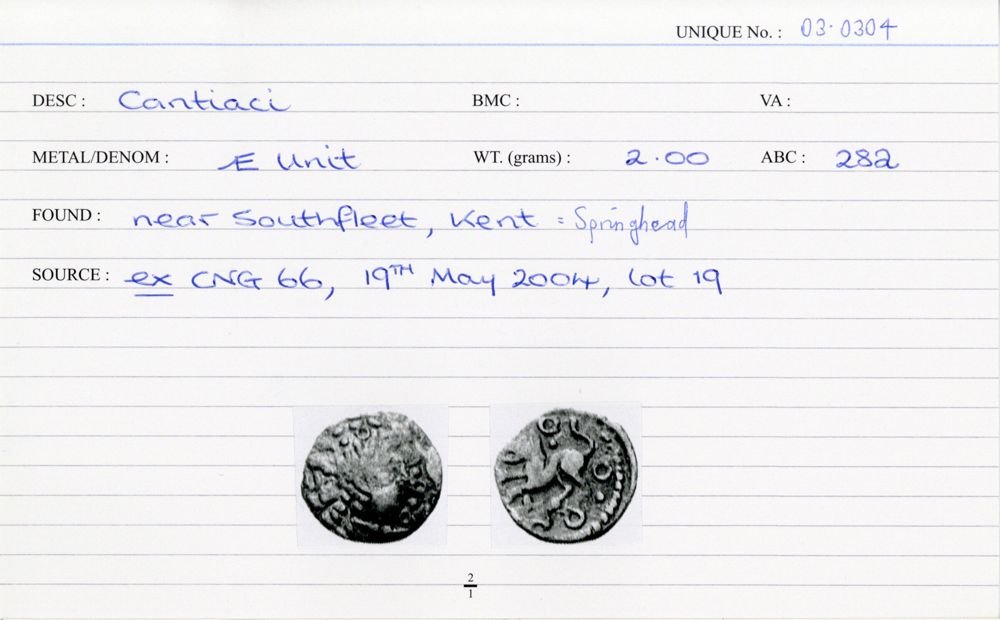 UNIQUE No. : 03·0304
DESC : Cantiaci BMC : VA :
METAL/DENOM : Æ Unit WT. (grams) : 2.00 ABC : 282
FOUND : near Southfleet, Kent = Springhead
SOURCE : ex CNG 66, 19TH May 2004, lot 19
2
1